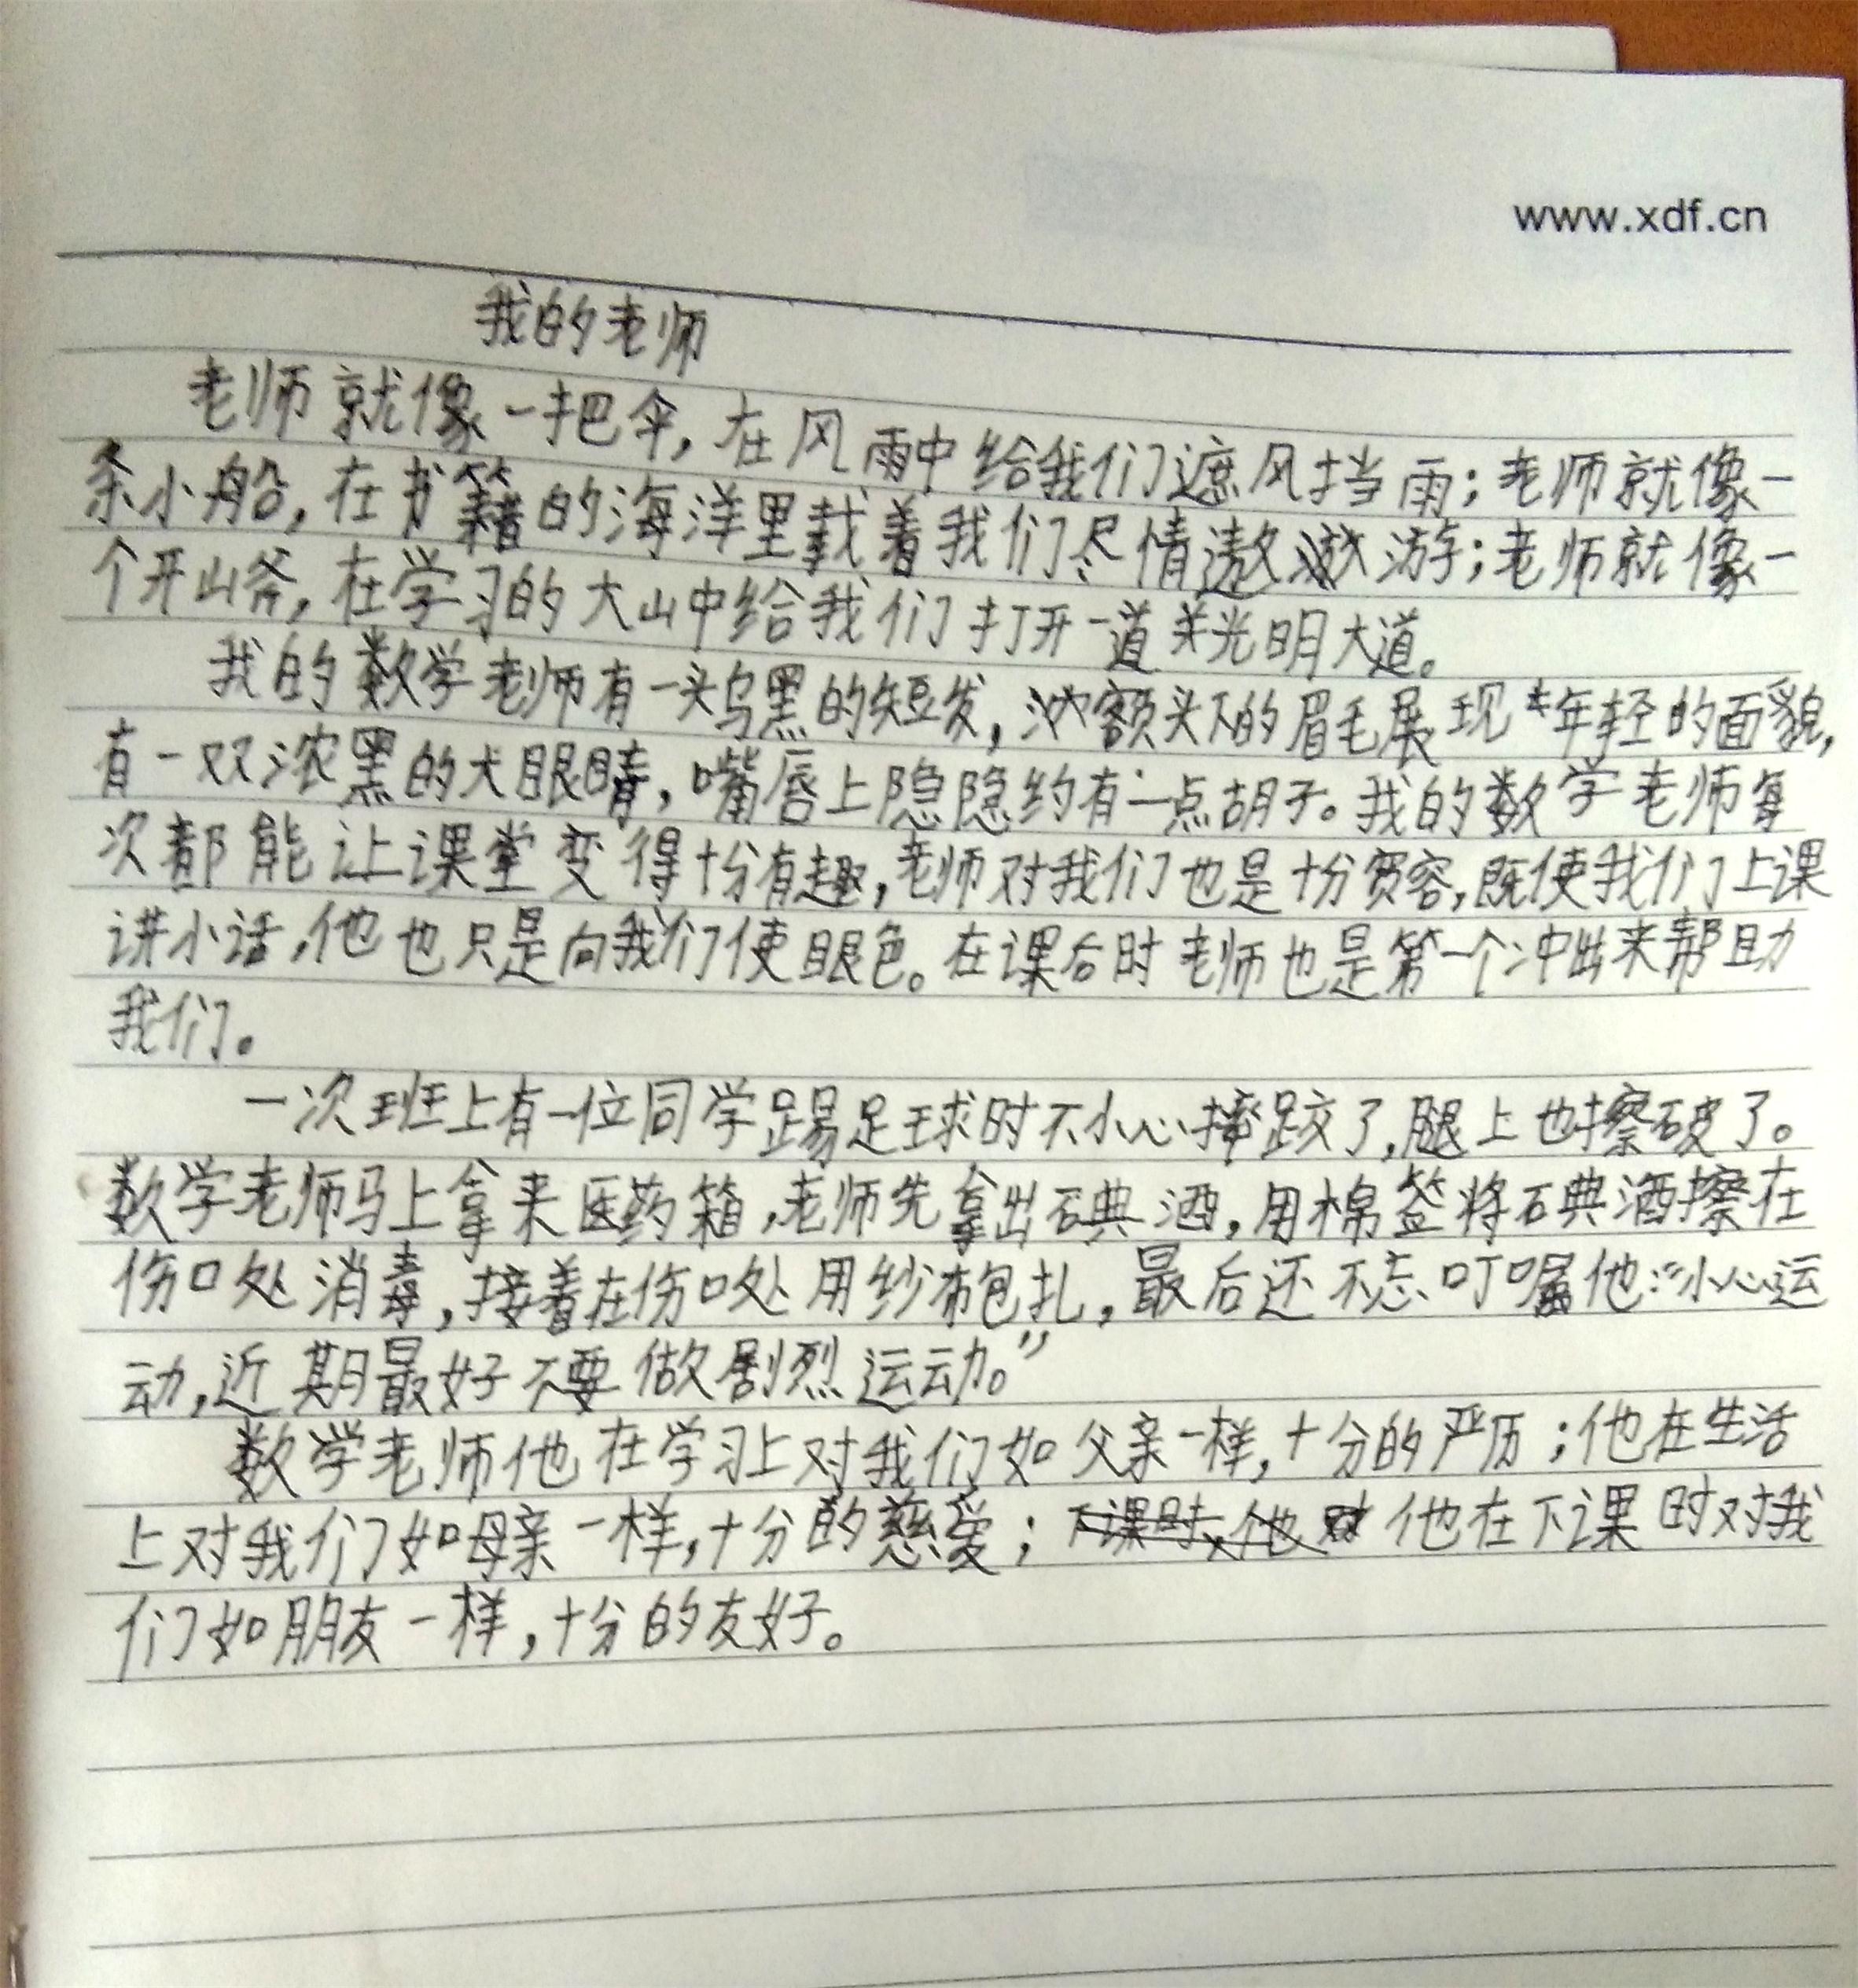 www.xdf.cn
我的老师
老师就像一把伞,在风雨中给我们遮风挡雨;老师就像一
条小船,在书籍的海洋里载着我们尽情遨游;老师就像一
个开山斧,在学习的大山中给我们打开一道光明大道。
我的数学老师有一头乌黑的短发,额头下的眉毛展现年轻的面貌,
有一双浓黑的大眼睛,嘴唇上隐隐约有一点胡子。我的数学老师每
次都能让课堂变得十分有趣,老师对我们也是十分宽容,既使我们上课
讲小话,他也只是向我们使眼色。在课后时老师也是第一个冲出来帮助
我们。
一次班上有一位同学踢足球时不小心摔跤了,腿上也擦破了。
数学老师马上拿来医药箱,老师先拿出碘酒,用棉签将碘酒擦在
伤口处消毒,接着在伤口处用纱布包扎,最后还不忘叮嘱他:“小心运
动,近期最好不要做剧烈运动。”
数学老师他在学习上对我们如父亲一样,十分的严历;他在生活
上对我们如母亲一样,十分的慈爱;他在下课时对我
们如朋友一样,十分的友好。